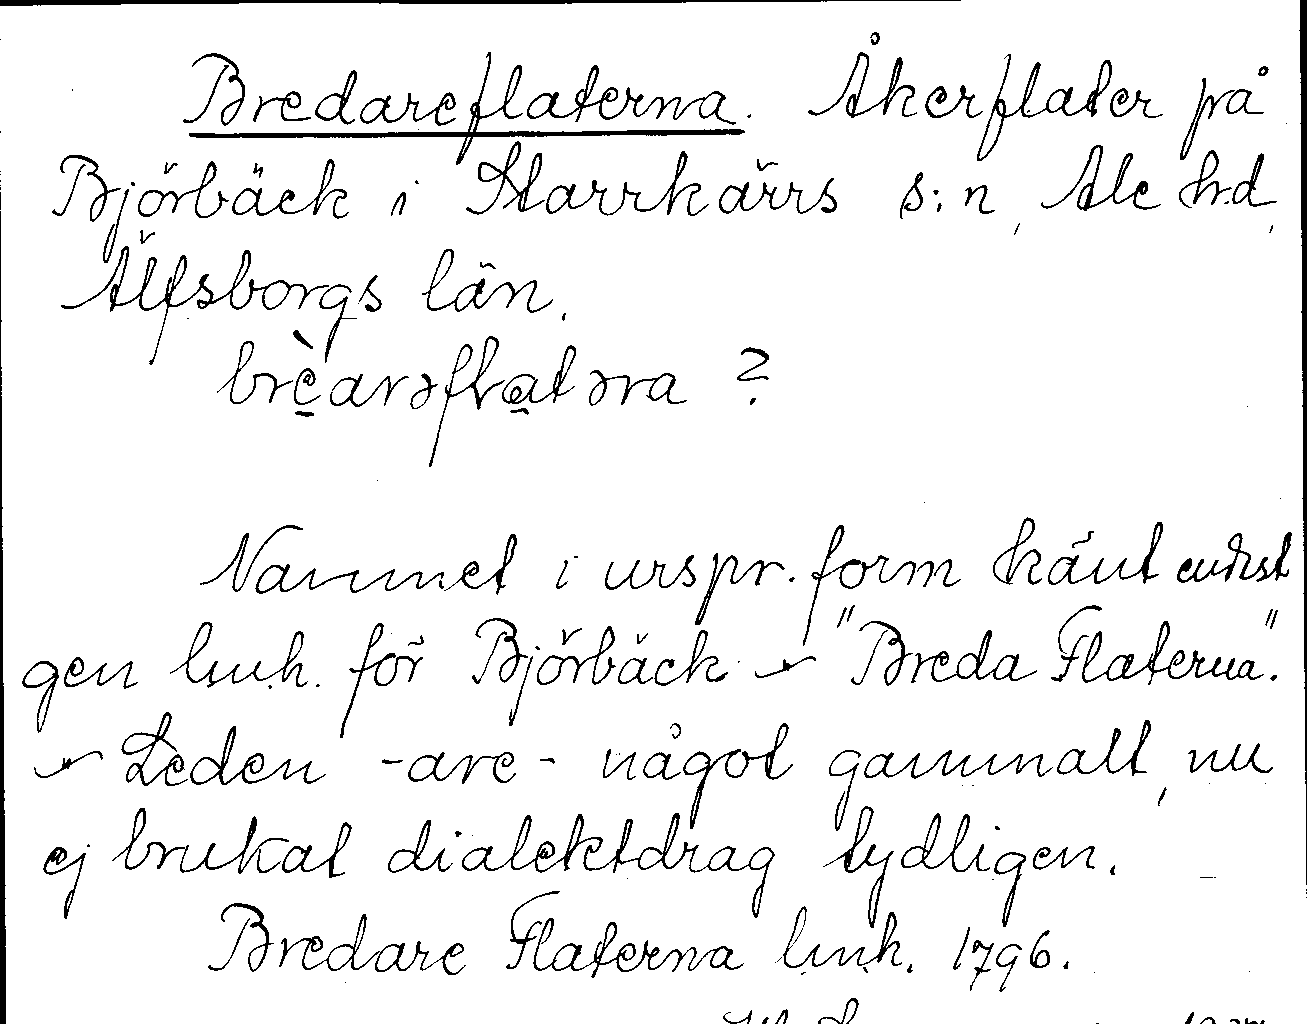 Bredareflaterna. Åkerflater på
Björbäck i Starrkärrs s:n, Ale hd,
Älfsborgs län.
brèarəflatəra ?
Namnet i urspr. form känt enligt
gen lm.h. för Björbäck - "Breda Flaterna".
- Leden -are- något gammalt, nu
ej brukat dialektdrag tydligen.
Bredare Flaterna lm.h. 1796.